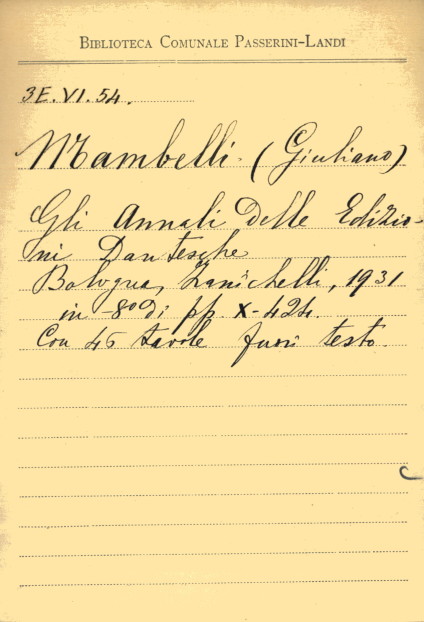 BIBLIOTECA COMUNALE PASSERINI-LANDI
3E.VI.54.
Mambelli. (Giuliano)
Gli Annali Delle Edizio-
ni Dantesche
Bologna, Zanichelli, 1931
in -8º di pp. X-424.
Con 45 tavole fuori testo.